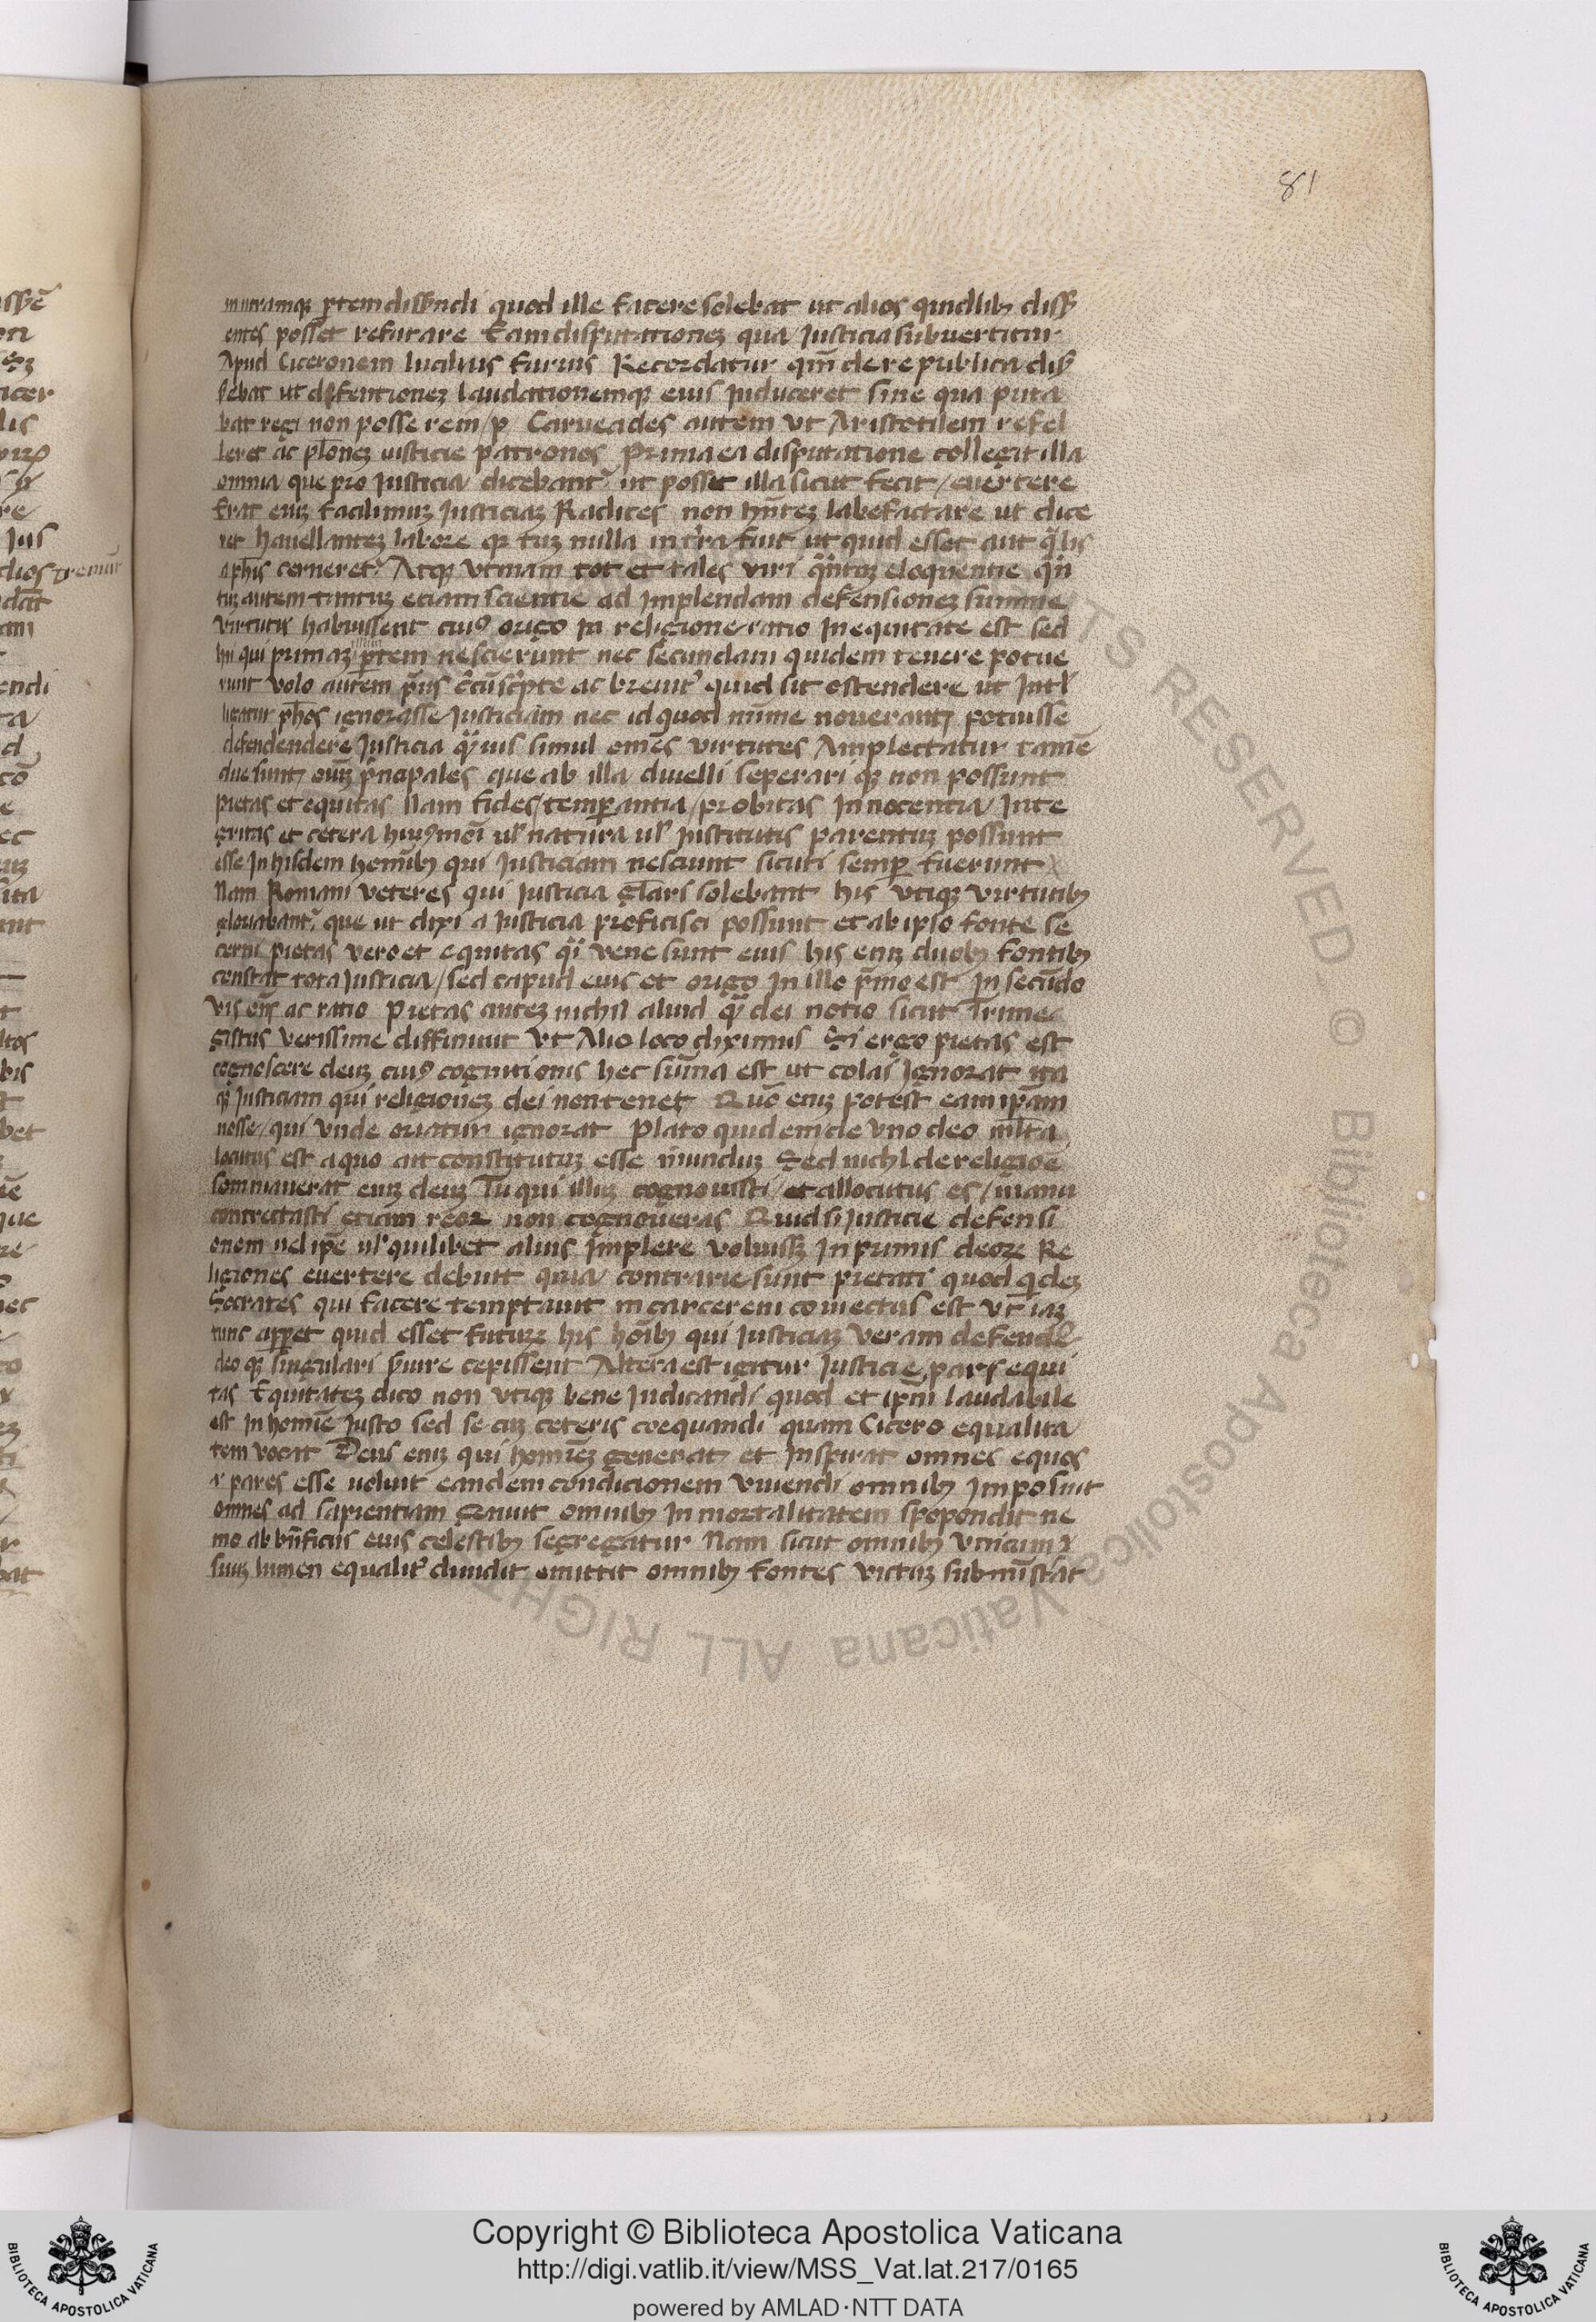 81
in utramque ꝑtem disserendi quod ille facere solebat ut alios quidlibꝫ diss
entes posset refutare Eam disputationeꝫ qua Iusticia subvertitur
Apud Ciceronem lucilius furius Recordatur qm̄ de re publica dis
sebat ut defentioneꝫ laudationemqꝫ eius Induceret sine qua puta
bat regi non posse rem p Carneades autem Vt Aristotilem refel
leret ac pl̄oneꝫ iusticie patronos Prima ea disputatione collegit illa
omnia que pro Iusticia dicebant᷑ ut posset illa sicut fecit / evertere
Erat eniꝫ facilimuꝫ Iusticiaꝫ Radices non hn̄teꝫ labefactare ut dice
labore qꝛ tuꝫ nulla in t̄ra fuit ut quid esset aut q̄lis
a ph̄is cerneret᷑ Atqꝫ Vtinam tot et tales viri q̄ntuꝫ eloquentie q̄n
tuꝫ autem tantuꝫ etiam scientie ad Implendam defensioneꝫ summe
virtutis habuissent cuiꝰ origo In religione ratio In equitate est sed
hii qui primaꝫ ꝑtem nescierunt nec secundam quidem tenere potue
runt Volo autem p̄us ac breuit᷑ quid sit ostendere ut Intl̄
ligatur ph̄os ignorasse Iusticiam nec id quod mīme noverant potuisse
defendendere Iusticia q̄uis simul om̄es virtutes Amplectatur tamē
due sunt om̄ꝫ p̄ncipales que ab illa divelli seperari qꝫ non possunt
pietas et equitas Nam fides / temꝑantia / probitas Innocentia Inte
gritas et cetera hiꝰmōi ul̄ natura ul̄ Institutis parentuꝫ possunt
esse In hisdem homībꝫ qui Iusticiam nesciunt sicuti semꝑ fuerunt
Nam Romani veteres qui Iusticia gl̄ari solebant his Vtiqꝫ virtutibꝫ
gloriabant᷑ que ut dixi a Iusticia proficisci possunt et ab ipso fonte se
cerni pietas vero et equitas q̄i vene sunt eius his eniꝫ duobꝫ fontibꝫ
constat tota Iusticia / sed capud eius et origo In illo p̄mo est In secūdo
vis om̄s ac ratio Pietas auteꝫ nichil aliud q̄ dei notio sicut Trime
gistus verissime diffiniuit Vt Alio loco diximus Si ergo pietas est
cognoscere deuꝫ cuiꝰ cognitionis hec sum̄a est ut colas Ignorat ita
qꝫ Iusticiam qui religioneꝫ dei non tenet Quō eniꝫ potest eam ip̄am
nosse / qui Vnde oriatur ignorat Plato quidem de Vno deo ml̄ta
locutus est a quo ait constitutuꝫ esse mundum Sed nichl de religione
somniaverat eniꝫ deuꝫ Tu qui illuꝫ cognovisti / et allocutus es / manu
contrectasti etiam reor non cognoveras Quid si Iusticie defensi
onem uel ip̄e ul̄ quilibet alius Implere Voluissꝫ In primis deorꝫ Re
ligiones evertere debuit quia contrarie sunt pietati quod qideꝫ
Socrates qui facere temptauit in carcerem coniectus est Vt iaꝫ
tunc apꝑet quid esset futurꝫ his hoībꝫ qui Iusticiaꝫ Veram defende
deo qꝫ singulari ẜuire cepissent Altera est igitur Iusticie pars equi
tas Equitateꝫ dico non Vtiqꝫ bene Iudicandi quod et ip̄m laudabile
est In homīe Iusto sed se cuꝫ ceteris coequandi quam Cicero equalita
tem vocat Deus eniꝫ qui homīeꝫ generat et Inspirat omnes equos
⁊ pares esse uoluit eandem condicionem Vivendi omnibꝫ Imposuit
omnes ad sapientiam genuit omnibꝫ In mortalitatem spopondit ne
mo ab bn̄ficiis eius celestibꝫ segregatur Nam sicut omnibꝫ Vnicum
suuꝫ lumen equalit᷑ diuidit emittit omnibꝫ fontes victuꝫ submīstrat
ALL RIGHTS RESERVED © Biblioteca Apostolica Vaticana
BIBLIOTECA APOSTOLICA VATICANA
Copyright © Biblioteca Apostolica Vaticana
http://digi.vatlib.it/view/MSS_Vat.lat.217/0165
powered by AMLAD·NTT DATA
BIBLIOTECA APOSTOLICA VATICANA